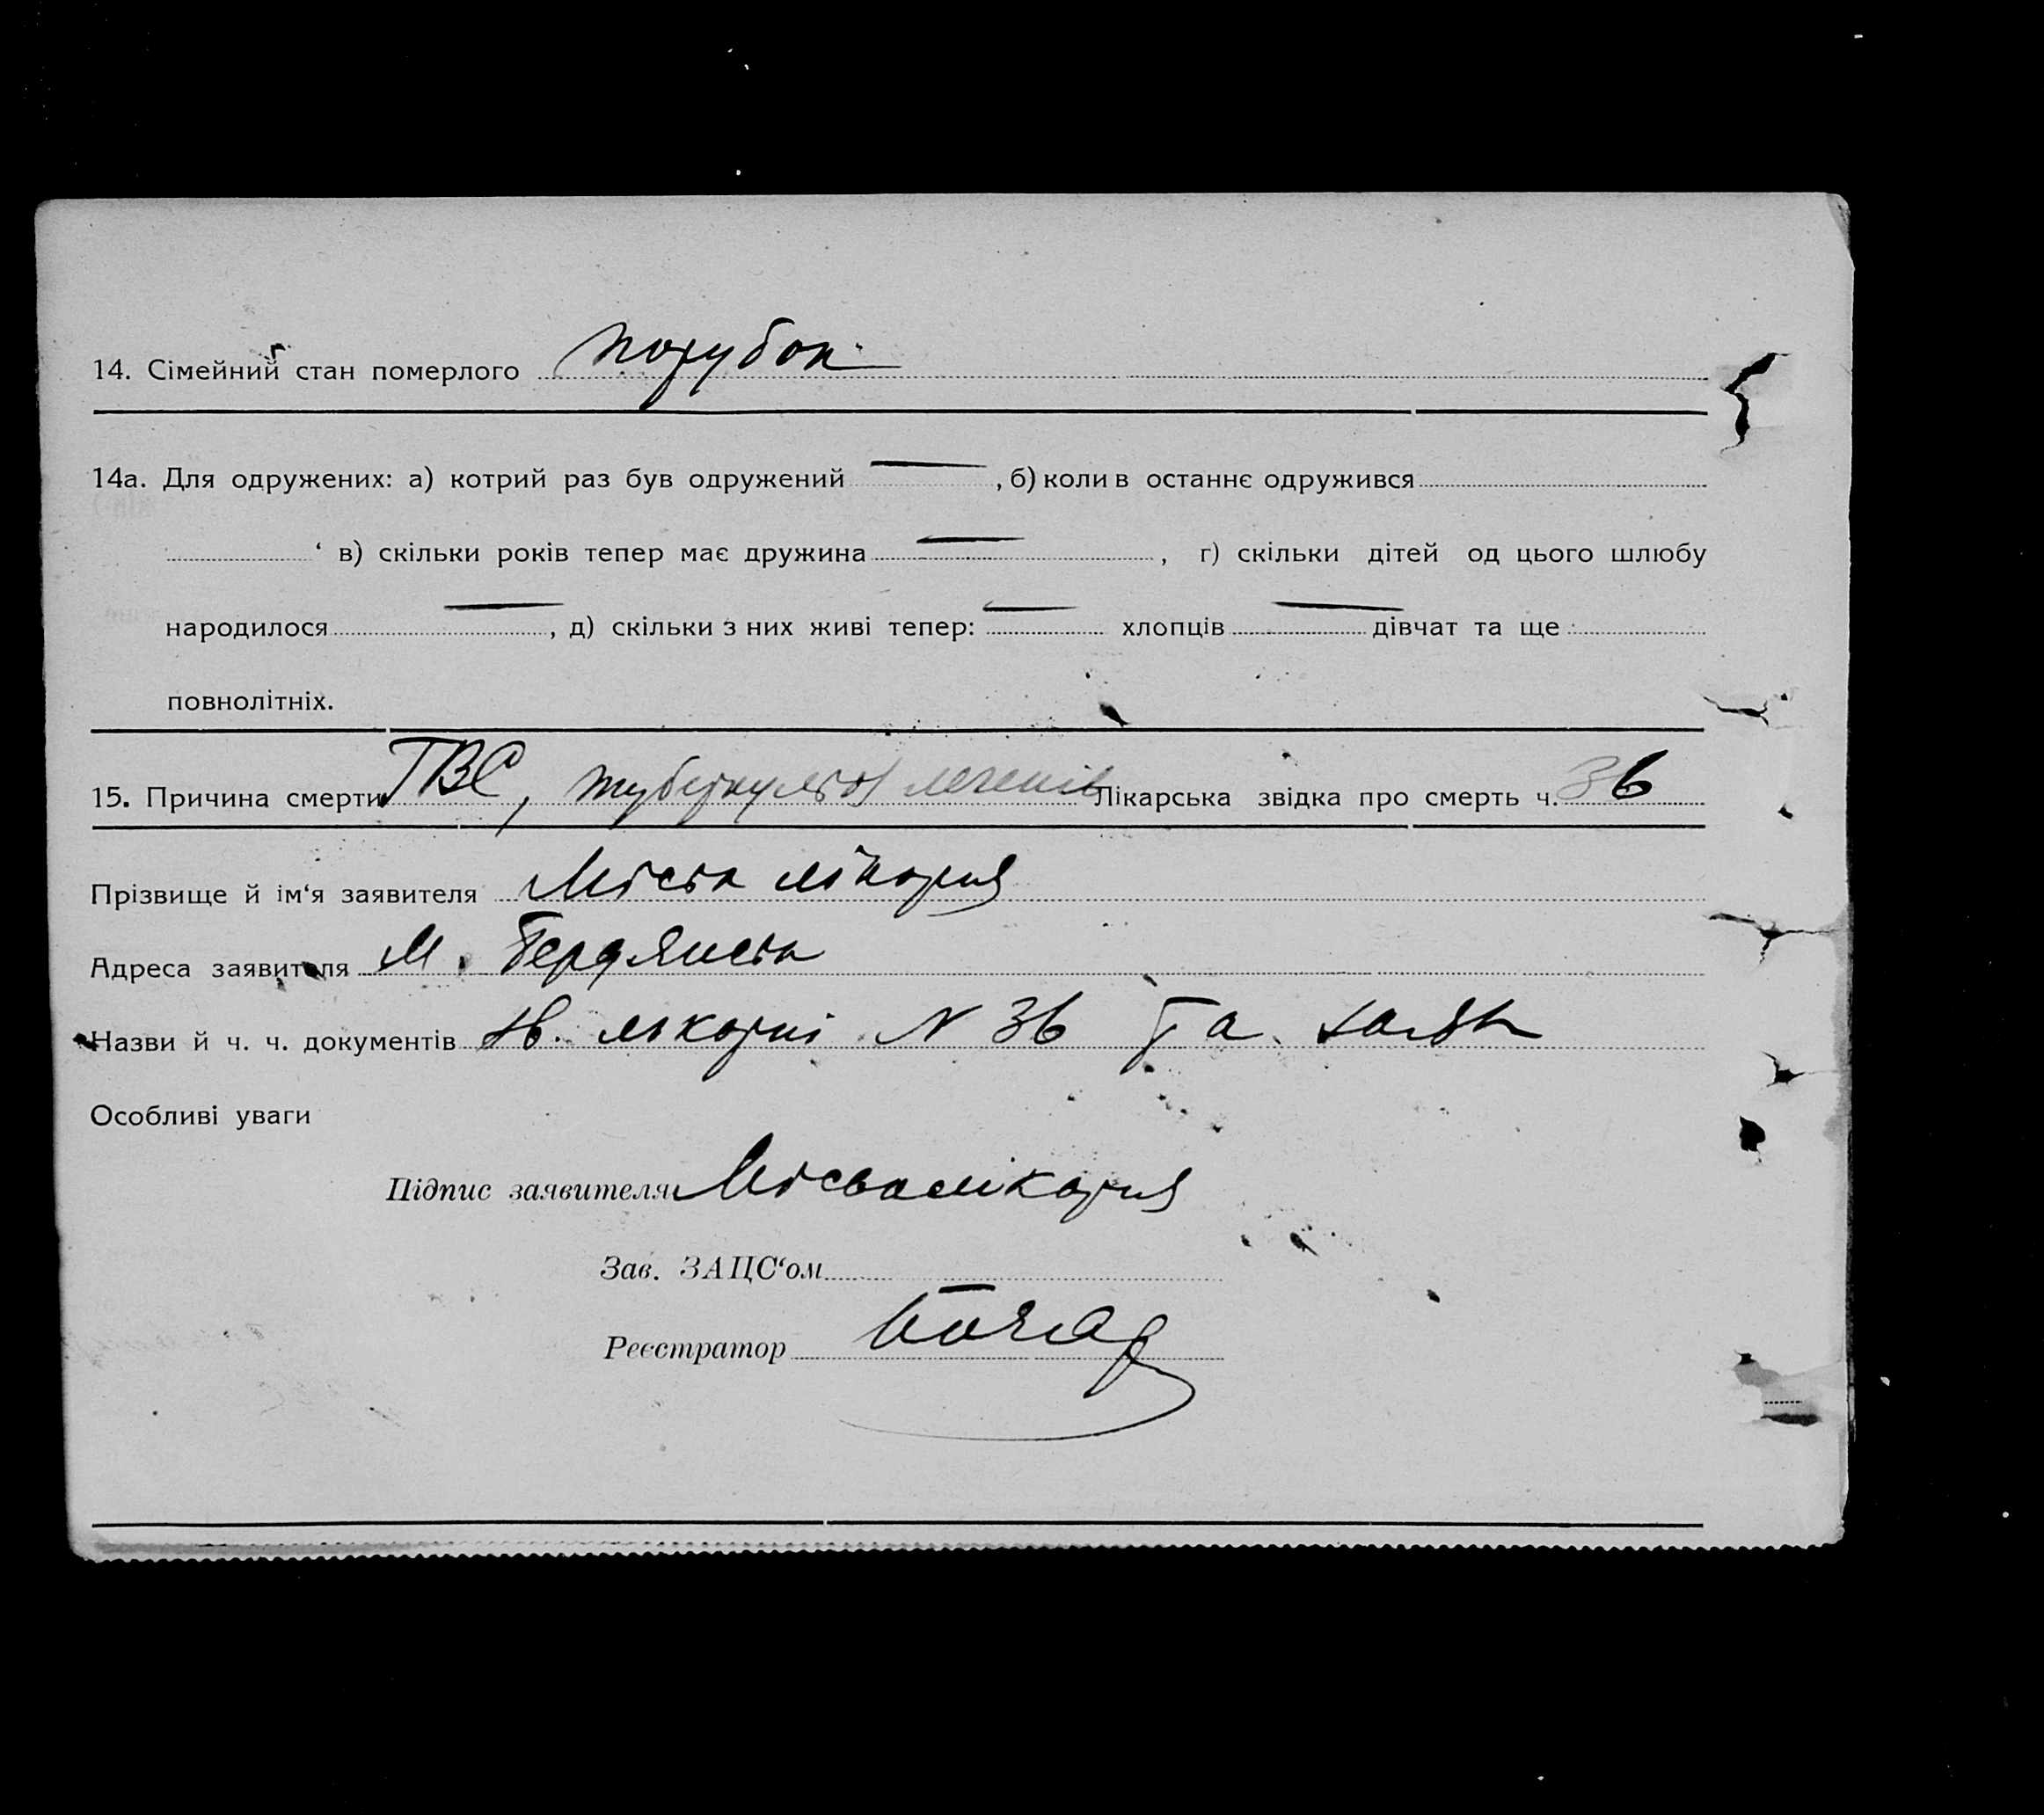 14. Сімейний стан померлого парубок
14а. Для одружених: а) котрий раз був одружений —, б) коли в останнє одружився
‘ в) скільки років тепер має дружина —, г) скільки дітей од цього шлюбу
народилося —, д) скільки з них живі тепер: — хлопців — дівчат та ще
повнолітніх.
15. Причина смерти ТВС, туберкульоз легенів Лікарська звідка про смерть ч. 36
Прізвище й ім‘я заявителя Міська лікарня
Адреса заявителя м. Бердянськ
Назви й ч. ч. документів зв. лікарні N 36 та заява
Особливі уваги
Підпис заявителя Міськалікарня
Зав. ЗАЦС‘ом
Реєстратор